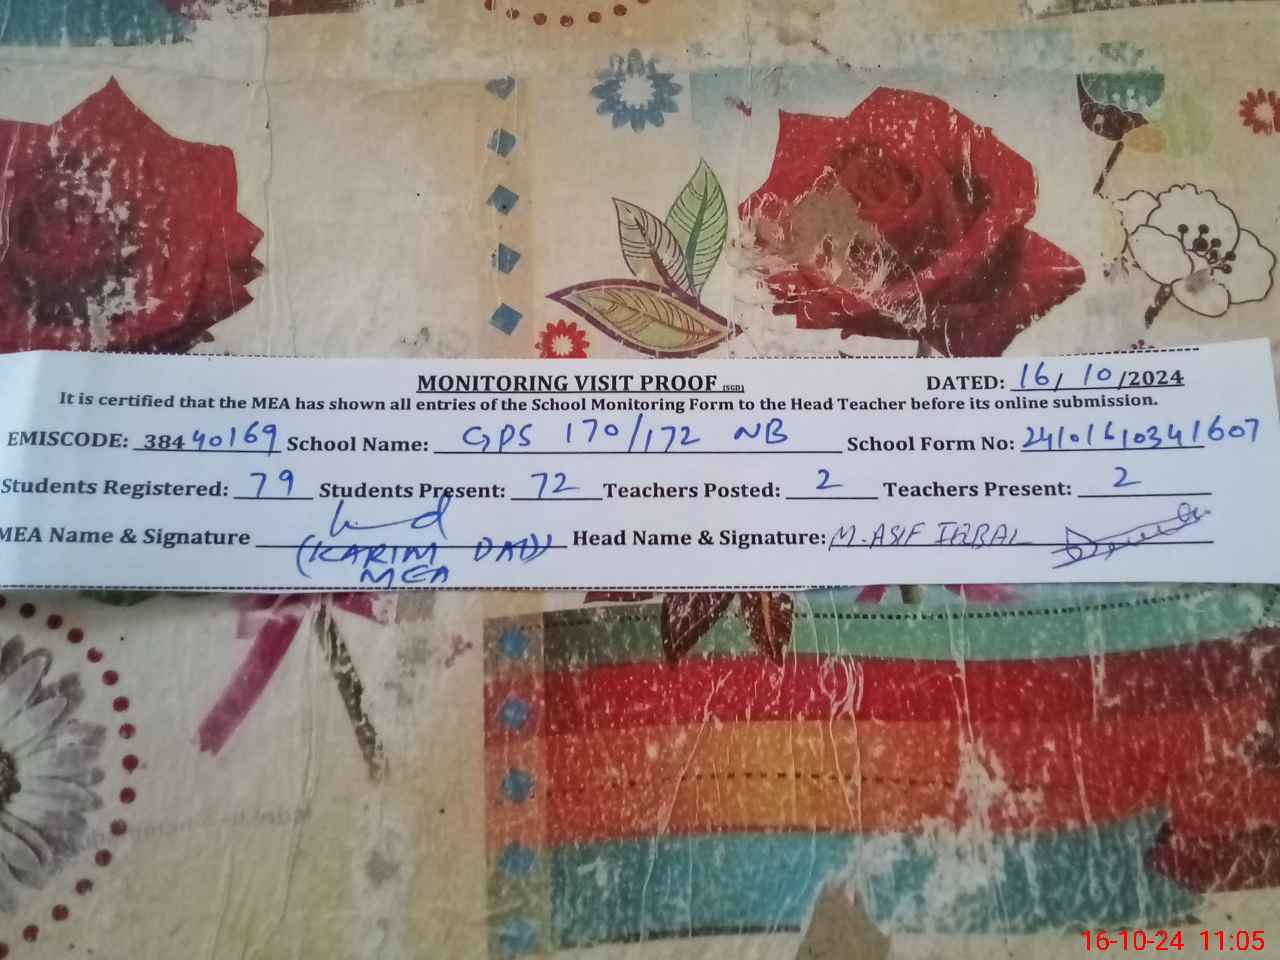 MONITORING VISIT PROOF (SGD) DATED: 16/10/2024
It is certified that the MEA has shown all entries of the School Monitoring Form to the Head Teacher before its online submission.
EMISCODE: 38440169 School Name: GPS 170/172 NB School Form No: 24101610341607
Students Registered: 79 Students Present: 72 Teachers Posted: 2 Teachers Present: 2
MEA Name & Signature (KARIM DAD) Head Name & Signature: M. ASIF IQBAL
MEA
16-10-24 11:05